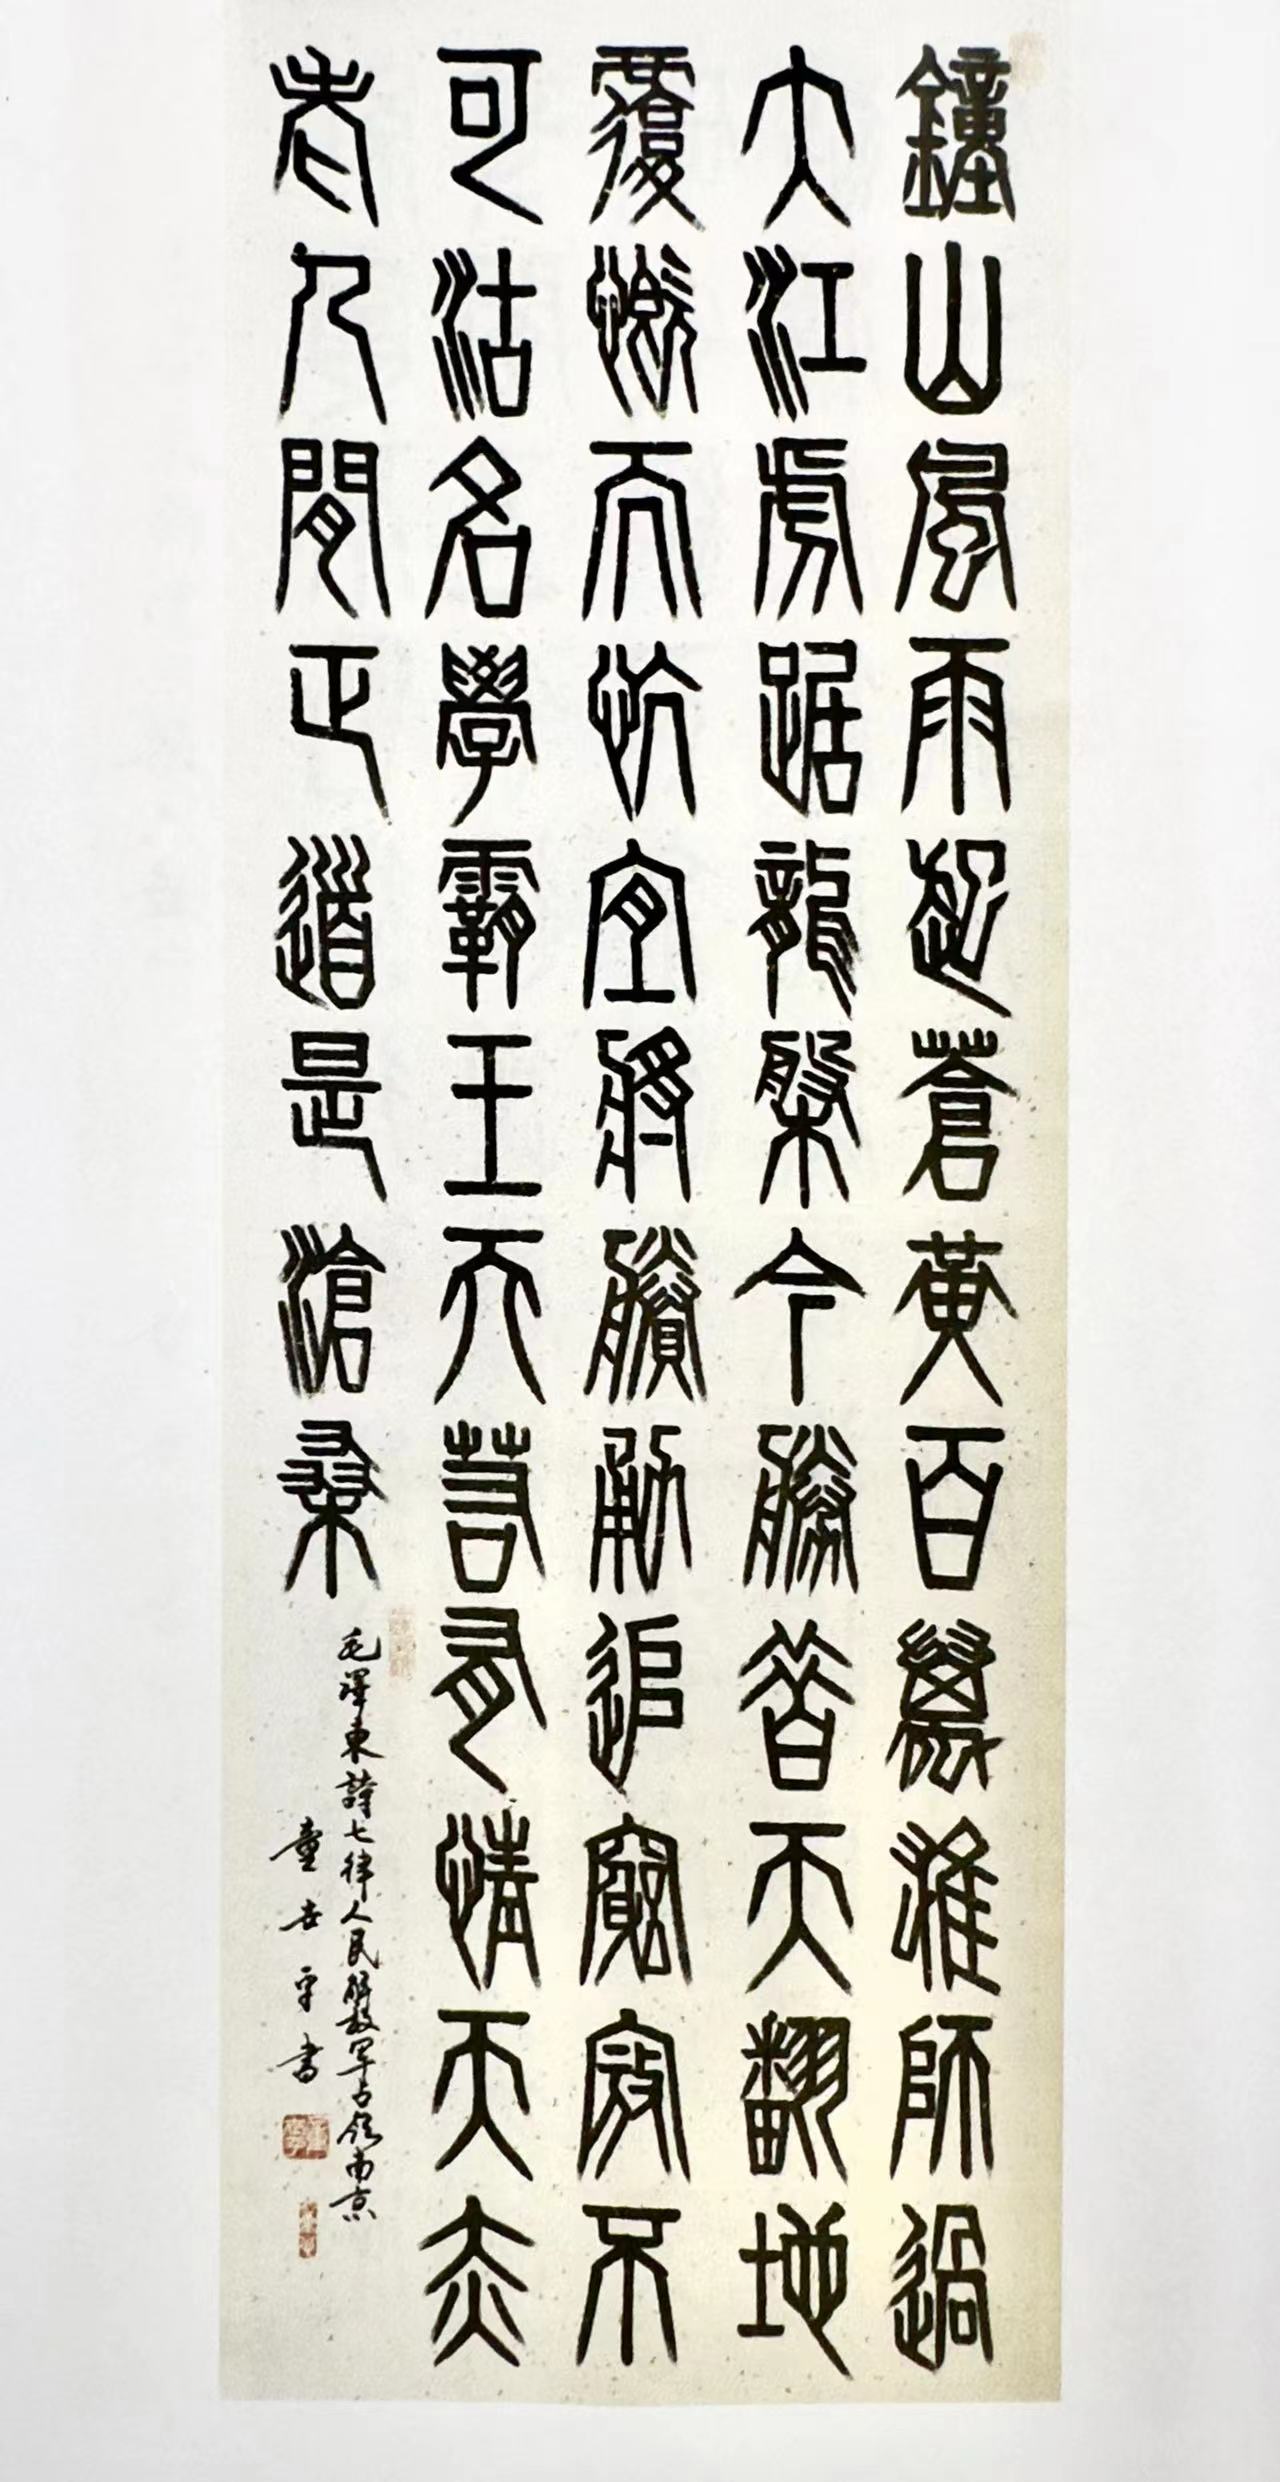 鐘山風雨起蒼黃百萬雄師過
大江虎踞龍槃今勝昔天翻地
覆慨而忼宜將賸勇追窮寇不
可沽名學霸王天若有情天亦
老人間正道是滄桑
毛澤東詩七律人民解放軍占領南京
童世平書